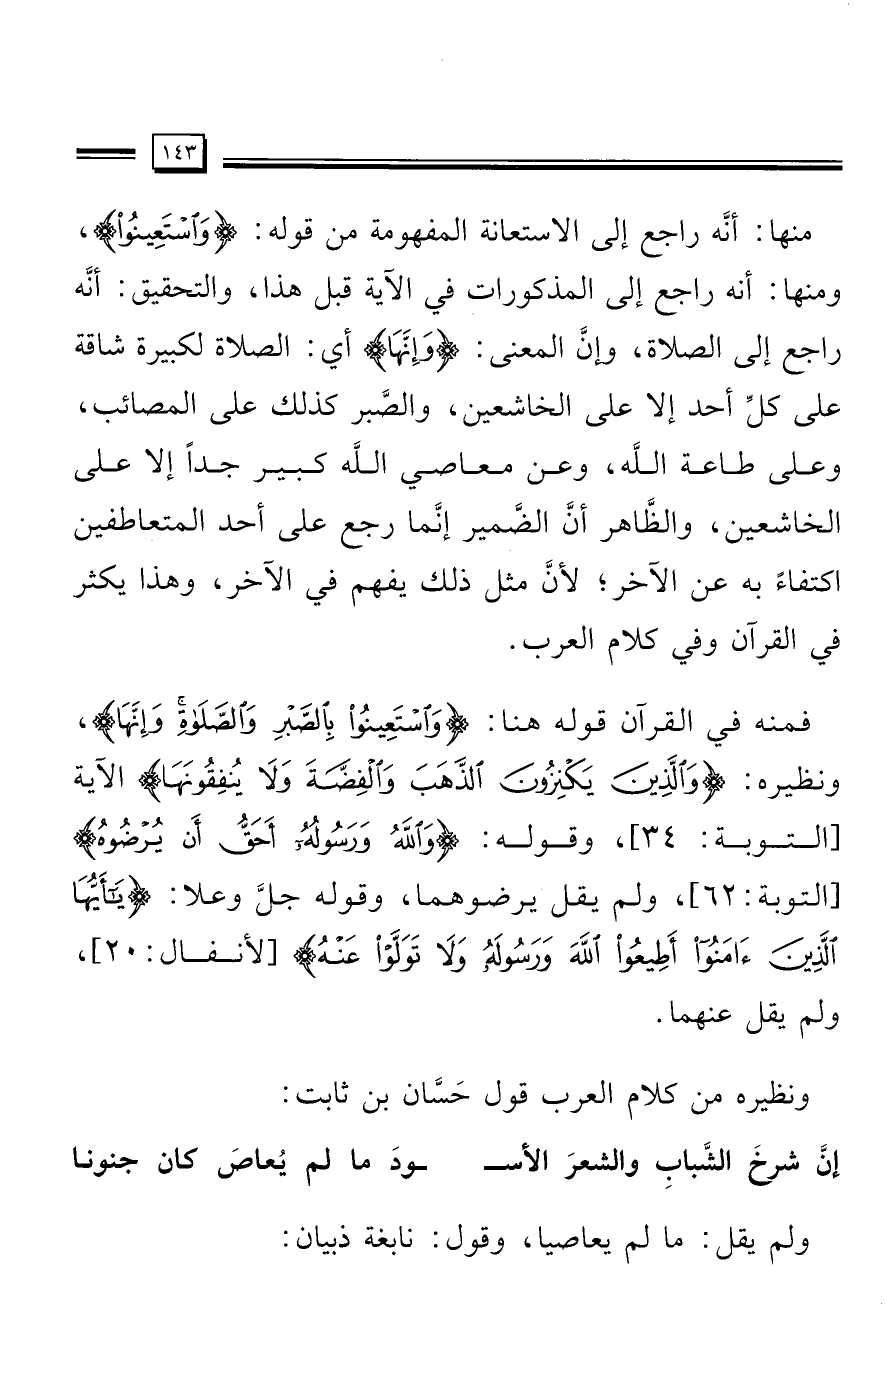 ١٤٣
منها: أنَّه راجع إلى الاستعانة المفهومة من قوله: ﴿وَٱسْتَعِينُوا۟﴾،
ومنها: أنه راجع إلى المذكورات في الآية قبل هذا، والتحقيق: أنَّه
راجع إلى الصلاة، وإنَّ المعنى: ﴿وَإِنَّهَا﴾ أي: الصلاة لكبيرة شاقة
على كلِّ أحد إلا على الخاشعين، والصَّبر كذلك على المصائب،
وعلى طاعة اللَّه، وعن معاصي اللَّه كبير جداً إلا على
الخاشعين، والظَّاهر أنَّ الضَّمير إنَّما رجع على أحد المتعاطفين
اكتفاءً به عن الآخر؛ لأنَّ مثل ذلك يفهم في الآخر، وهذا يكثر
في القرآن وفي كلام العرب.
فمنه في القرآن قوله هنا: ﴿وَٱسْتَعِينُوا۟ بِٱلصَّبْرِ وَٱلصَّلَوٰةِۚ وَإِنَّهَا﴾،
ونظيره: ﴿وَٱلَّذِينَ يَكْنِزُونَ ٱلذَّهَبَ وَٱلْفِضَّةَ وَلَا يُنفِقُونَهَا﴾ الآية
[التوبة: ٣٤]، وقوله: ﴿وَٱللَّهُ وَرَسُولُهُۥٓ أَحَقُّ أَن يُرْضُوهُ﴾
[التوبة: ٦٢]، ولم يقل يرضوهما، وقوله جلَّ وعلا: ﴿يَٰٓأَيُّهَا
ٱلَّذِينَ ءَامَنُوٓا۟ أَطِيعُوا۟ ٱللَّهَ وَرَسُولَهُۥ وَلَا تَوَلَّوْا۟ عَنْهُ﴾ [لأنفال: ٢٠]،
ولم يقل عنهما.
ونظيره من كلام العرب قول حَسَّان بن ثابت:
إنَّ شرخَ الشَّبابِ والشعرَ الأسـ ـودَ ما لم يُعاصَ كان جنونا
ولم يقل: ما لم يعاصيا، وقول: نابغة ذبيان: